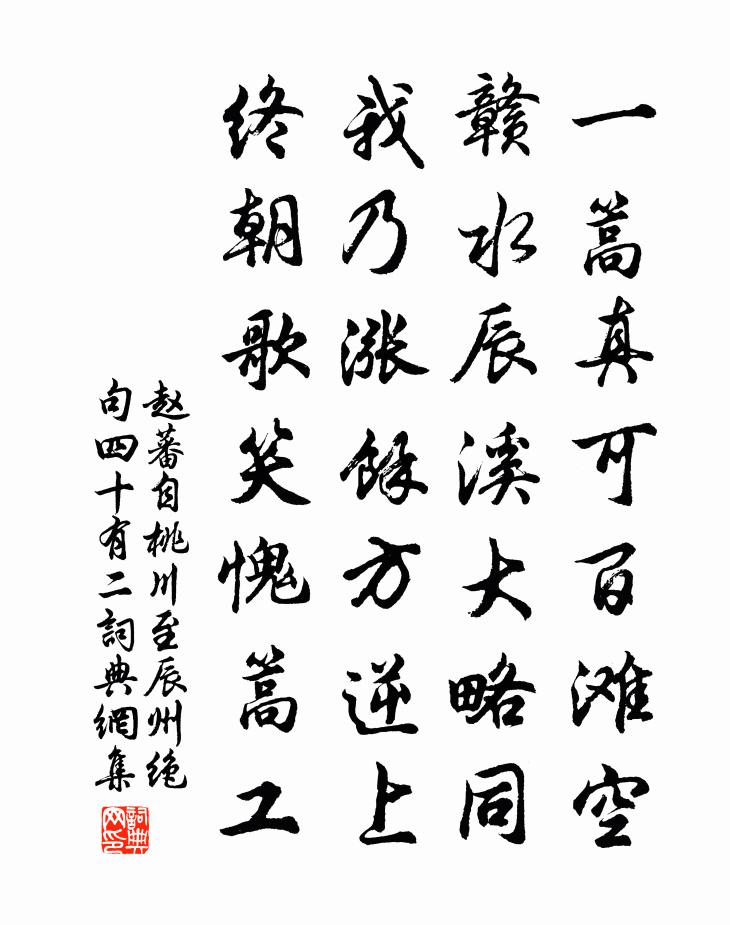 一篙真可百滩空
赣水辰溪大略同
我乃漲餘方逆上
终朝歌笑愧篙工
赵蕃自桃川至辰州绝
句四十有二詞典網集
詞典網印